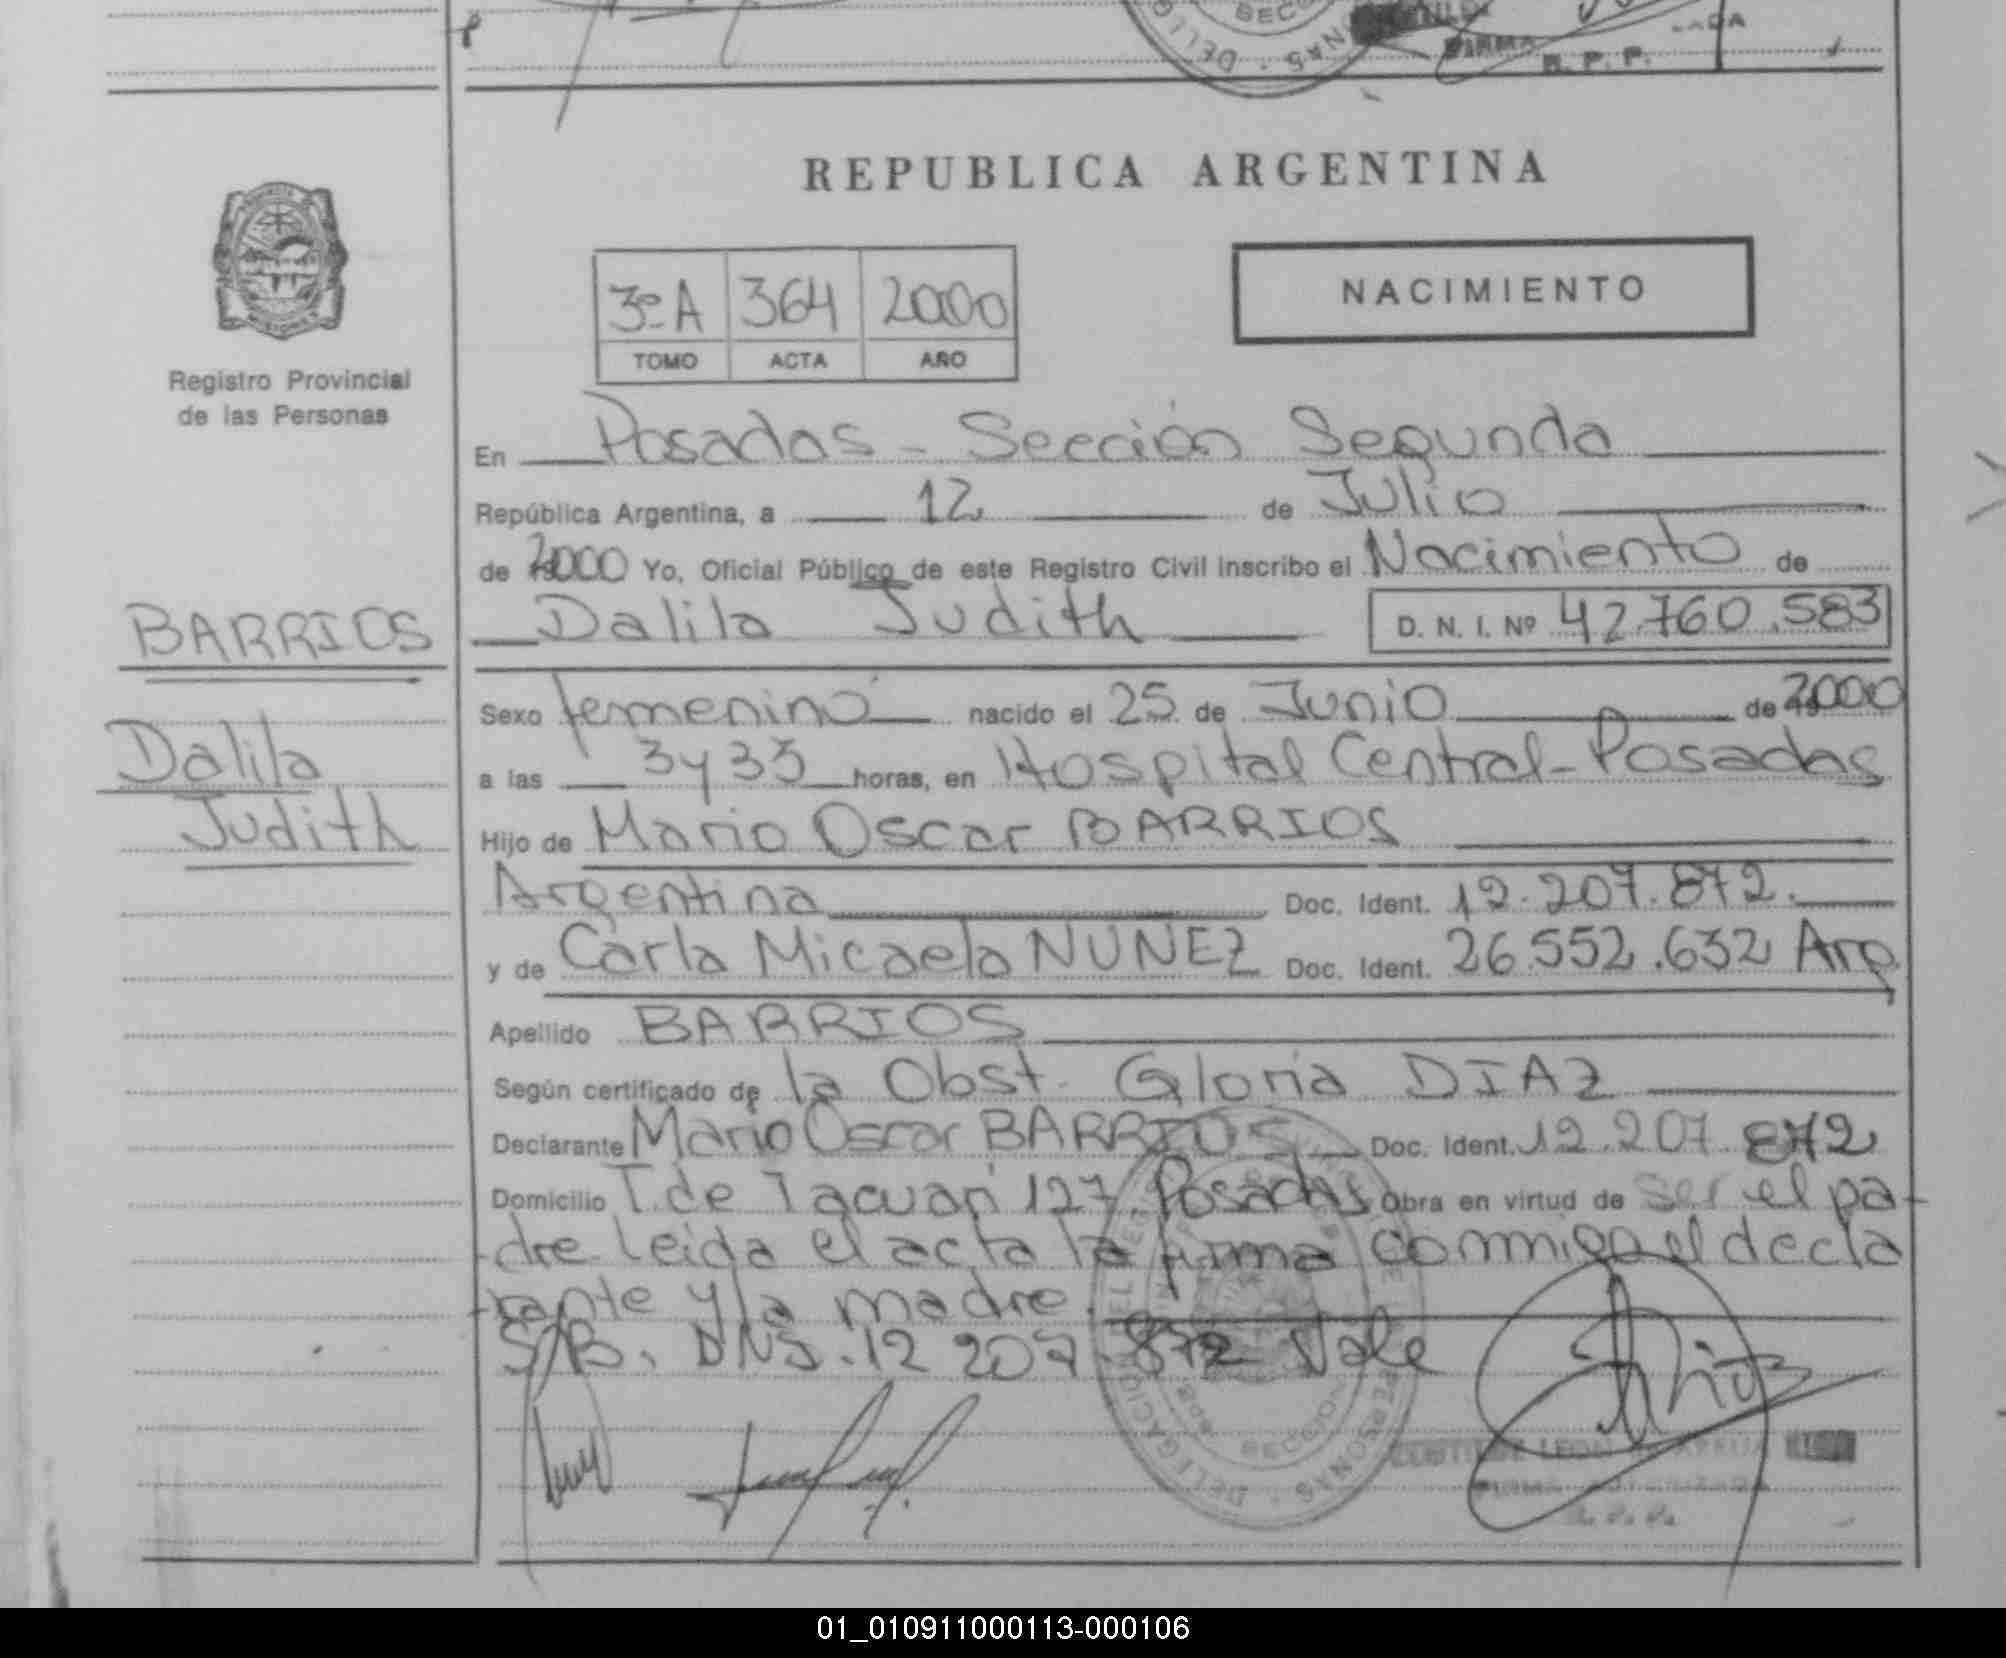 REPUBLICA ARGENTINA
3ºA 364 2000
TOMO ACTA AÑO
NACIMIENTO
Registro Provincial
de las Personas
En Posadas - Sección Segunda
República Argentina, a 12 de Julio
de 2000 Yo, Oficial Público de este Registro Civil inscribo el Nacimiento de
Dalila Judith D. N. I. Nº 42.760.583
BARRIOS
Dalila
Judith
Sexo femenino nacido el 25 de Junio de 2000
a las 3 y 35 horas, en Hospital Central - Posadas
Hijo de Mario Oscar BARRIOS
Argentina Doc. Ident. 12.207.872.
y de Carla Micaela NUNEZ Doc. Ident. 26.552.632 Arg.
Apellido BARRIOS
Según certificado de la Obst. Gloria DIAZ
Declarante Mario Oscar BARRIOS Doc. Ident. 12.207.872
Domicilio T. de Tacuari 127 Posadas Obra en virtud de ser el pa-
dre Leida el acta la firma conmigo el decla
rante y la madre.
S/B. DNI. 12 207 872 Vale
01_010911000113-000106